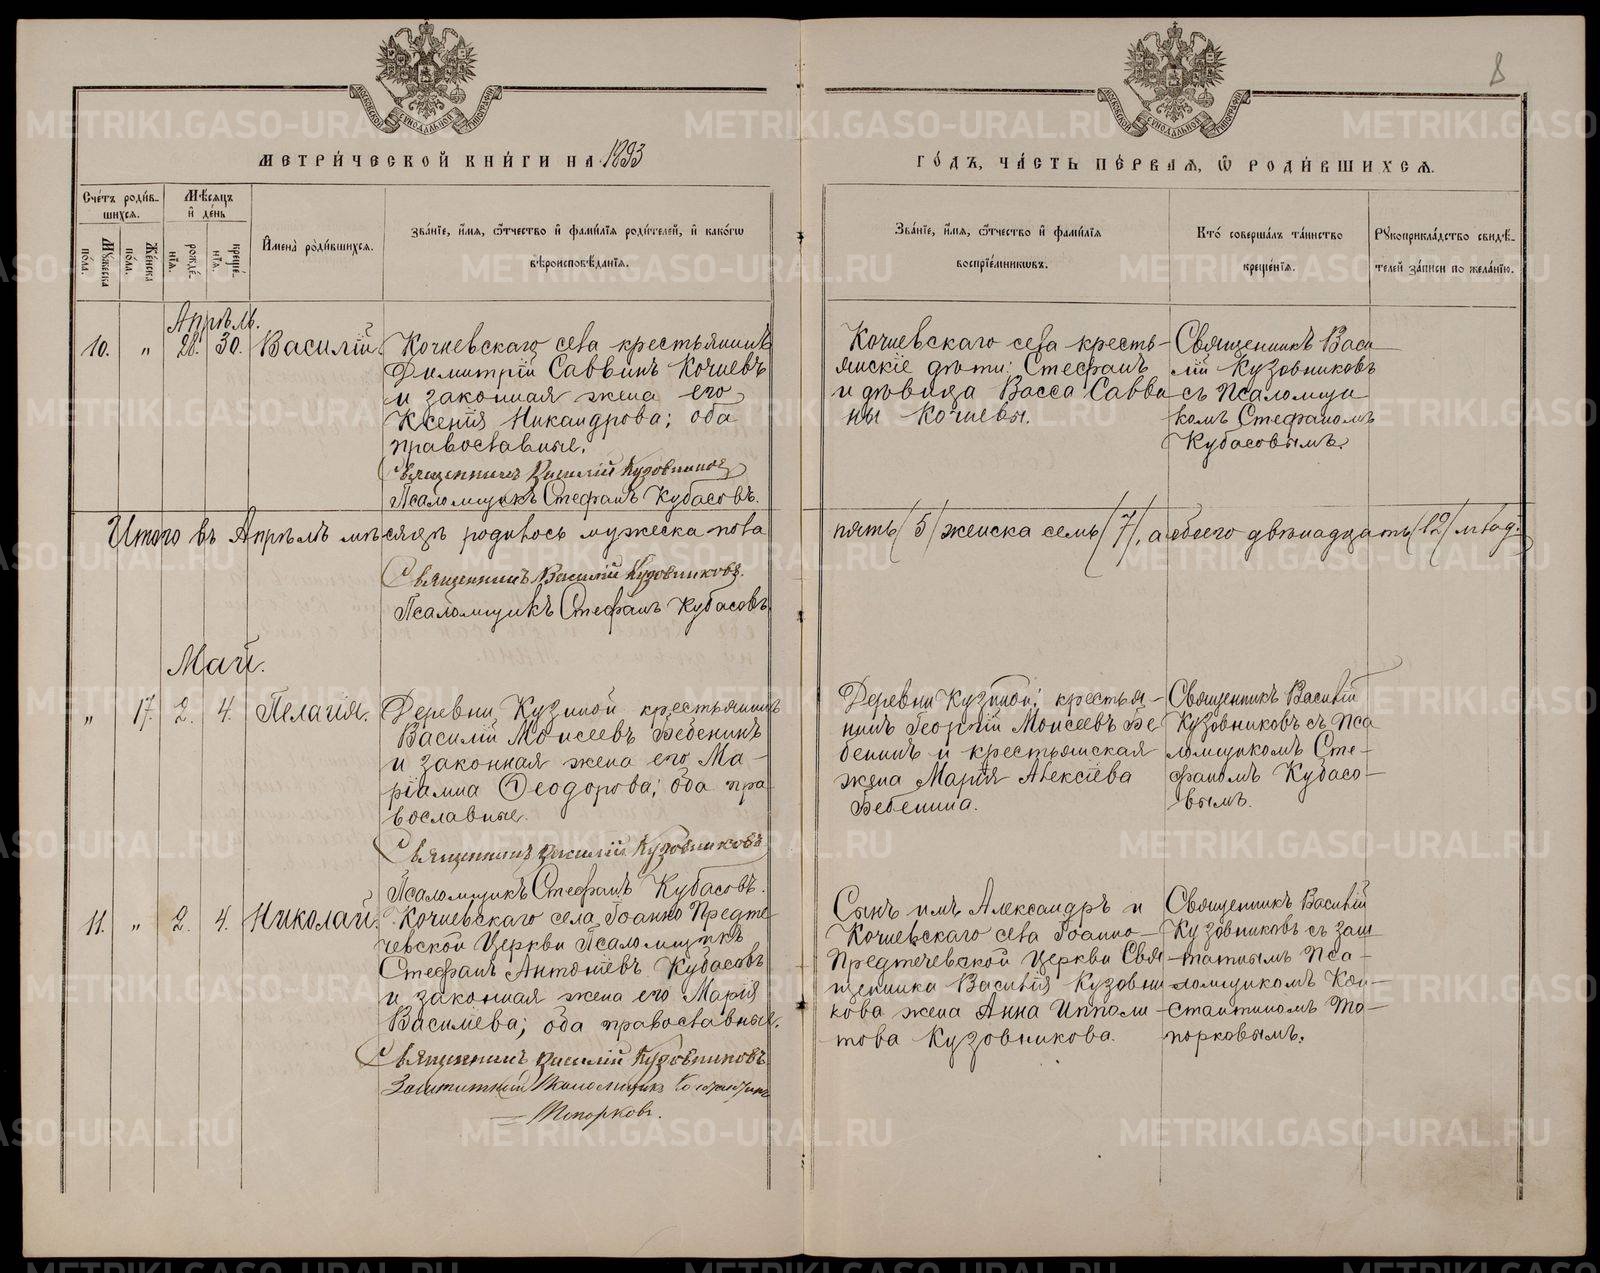 8
МЕТРИ́ЧЕСКОЙ КНИ́ГИ НА 1893
ГО́ДЪ, ЧА́СТЬ ПЕ́РВАЯ, Ѽ РОДИ́ВШИХСЯ.
Сче́тъ роди́в-
шихся.
Мѣ́сяцъ
и҆ де́нь
Му́жеска
по́ла.
Же́нска
по́ла.
рожде́-
нїѧ.
креще́-
нїѧ.
И҆мена̀ роди́вшихся.
Зва́нїе, и҆́мя, ѻ҆́тчество и҆ фами́лїя роди́телей, и҆ како́гѡ
вѣроисповѣ́данїя.
Зва́нїе, и҆́мя, ѻ҆́тчество и҆ фами́лїя
воспрїе́мникѡвъ.
Кто̀ соверша́лъ та́инство
креще́нїя.
Рꙋкоприкла́дство свидѣ́-
телей за́писи по жела́нїю.
Апрѣль.
10. " 28. 30. Василій.
Кочневскаго села крестьянинъ
Димитрій Саввинъ Кочневъ
и законная жена его
Ксенія Никандрова; оба
православные.
Священникъ Василій Кузовниковъ
Псаломщикъ Стефанъ Кубасовъ.
Кочневскаго села кресть-
янскіе дѣти: Стефанъ
и дѣвица Васса Савви
ны Кочневы.
Священникъ Васи
лій Кузовниковъ
съ Псаломщи
комъ Стефаномъ
Кубасовымъ.
Итого въ Апрѣлѣ мѣсяцѣ родилось мужеска пола
пять (5) женска семь (7), а обоего двѣнадцать (12) млад.
Священникъ Василій Кузовниковъ.
Псаломщикъ Стефанъ Кубасовъ.
Май.
" 17. 2. 4. Пелагія.
Деревни Кузиной крестьянинъ
Василій Моисеевъ Бебенинъ
и законная жена его Ма-
ріамна Ѳеодорова; оба пра
вославные.
Священникъ Василій Кузовниковъ
Псаломщикъ Стефанъ Кубасовъ.
Деревни Кузиной: крестья-
нинъ Георгій Моисеевъ Бе
бенинъ и крестьянская
жена Марія Алексіева
Бебенина.
Священникъ Василій
Кузовниковъ съ Пса
ломщикомъ Сте-
фаномъ Кубасо-
вымъ.
11. " 2. 4. Николай.
Кочневскаго села, Іоанно Предте
чевской Церкви Псаломщикъ
Стефанъ Антоніевъ Кубасовъ
и законная жена его Марія
Василіева; оба православные.
Священникъ Василій Кузовниковъ
Заштатный Псаломщикъ Константинъ
Топорковъ.
Сынъ имъ Александръ и
Кочневскаго села Іоанно-
Предтечевской Церкви Свя
щенника Василія Кузовни
кова жена Анна Иппали
това Кузовникова.
Священникъ Василій
Кузовниковъ съ заш
татнымъ Пса-
ломщикомъ Кон-
стантиномъ То-
порковымъ.
METRIKI.GASO-URAL.RU